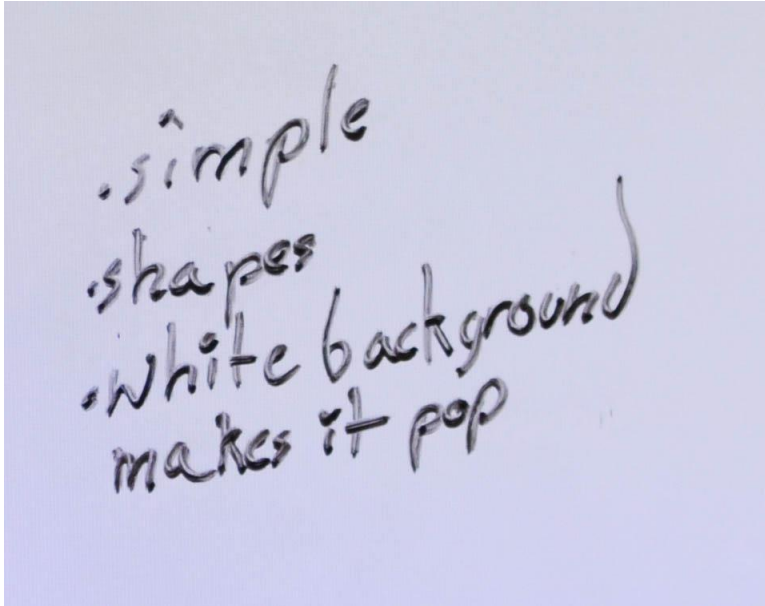 .simple
.shapes
.white background
makes it pop